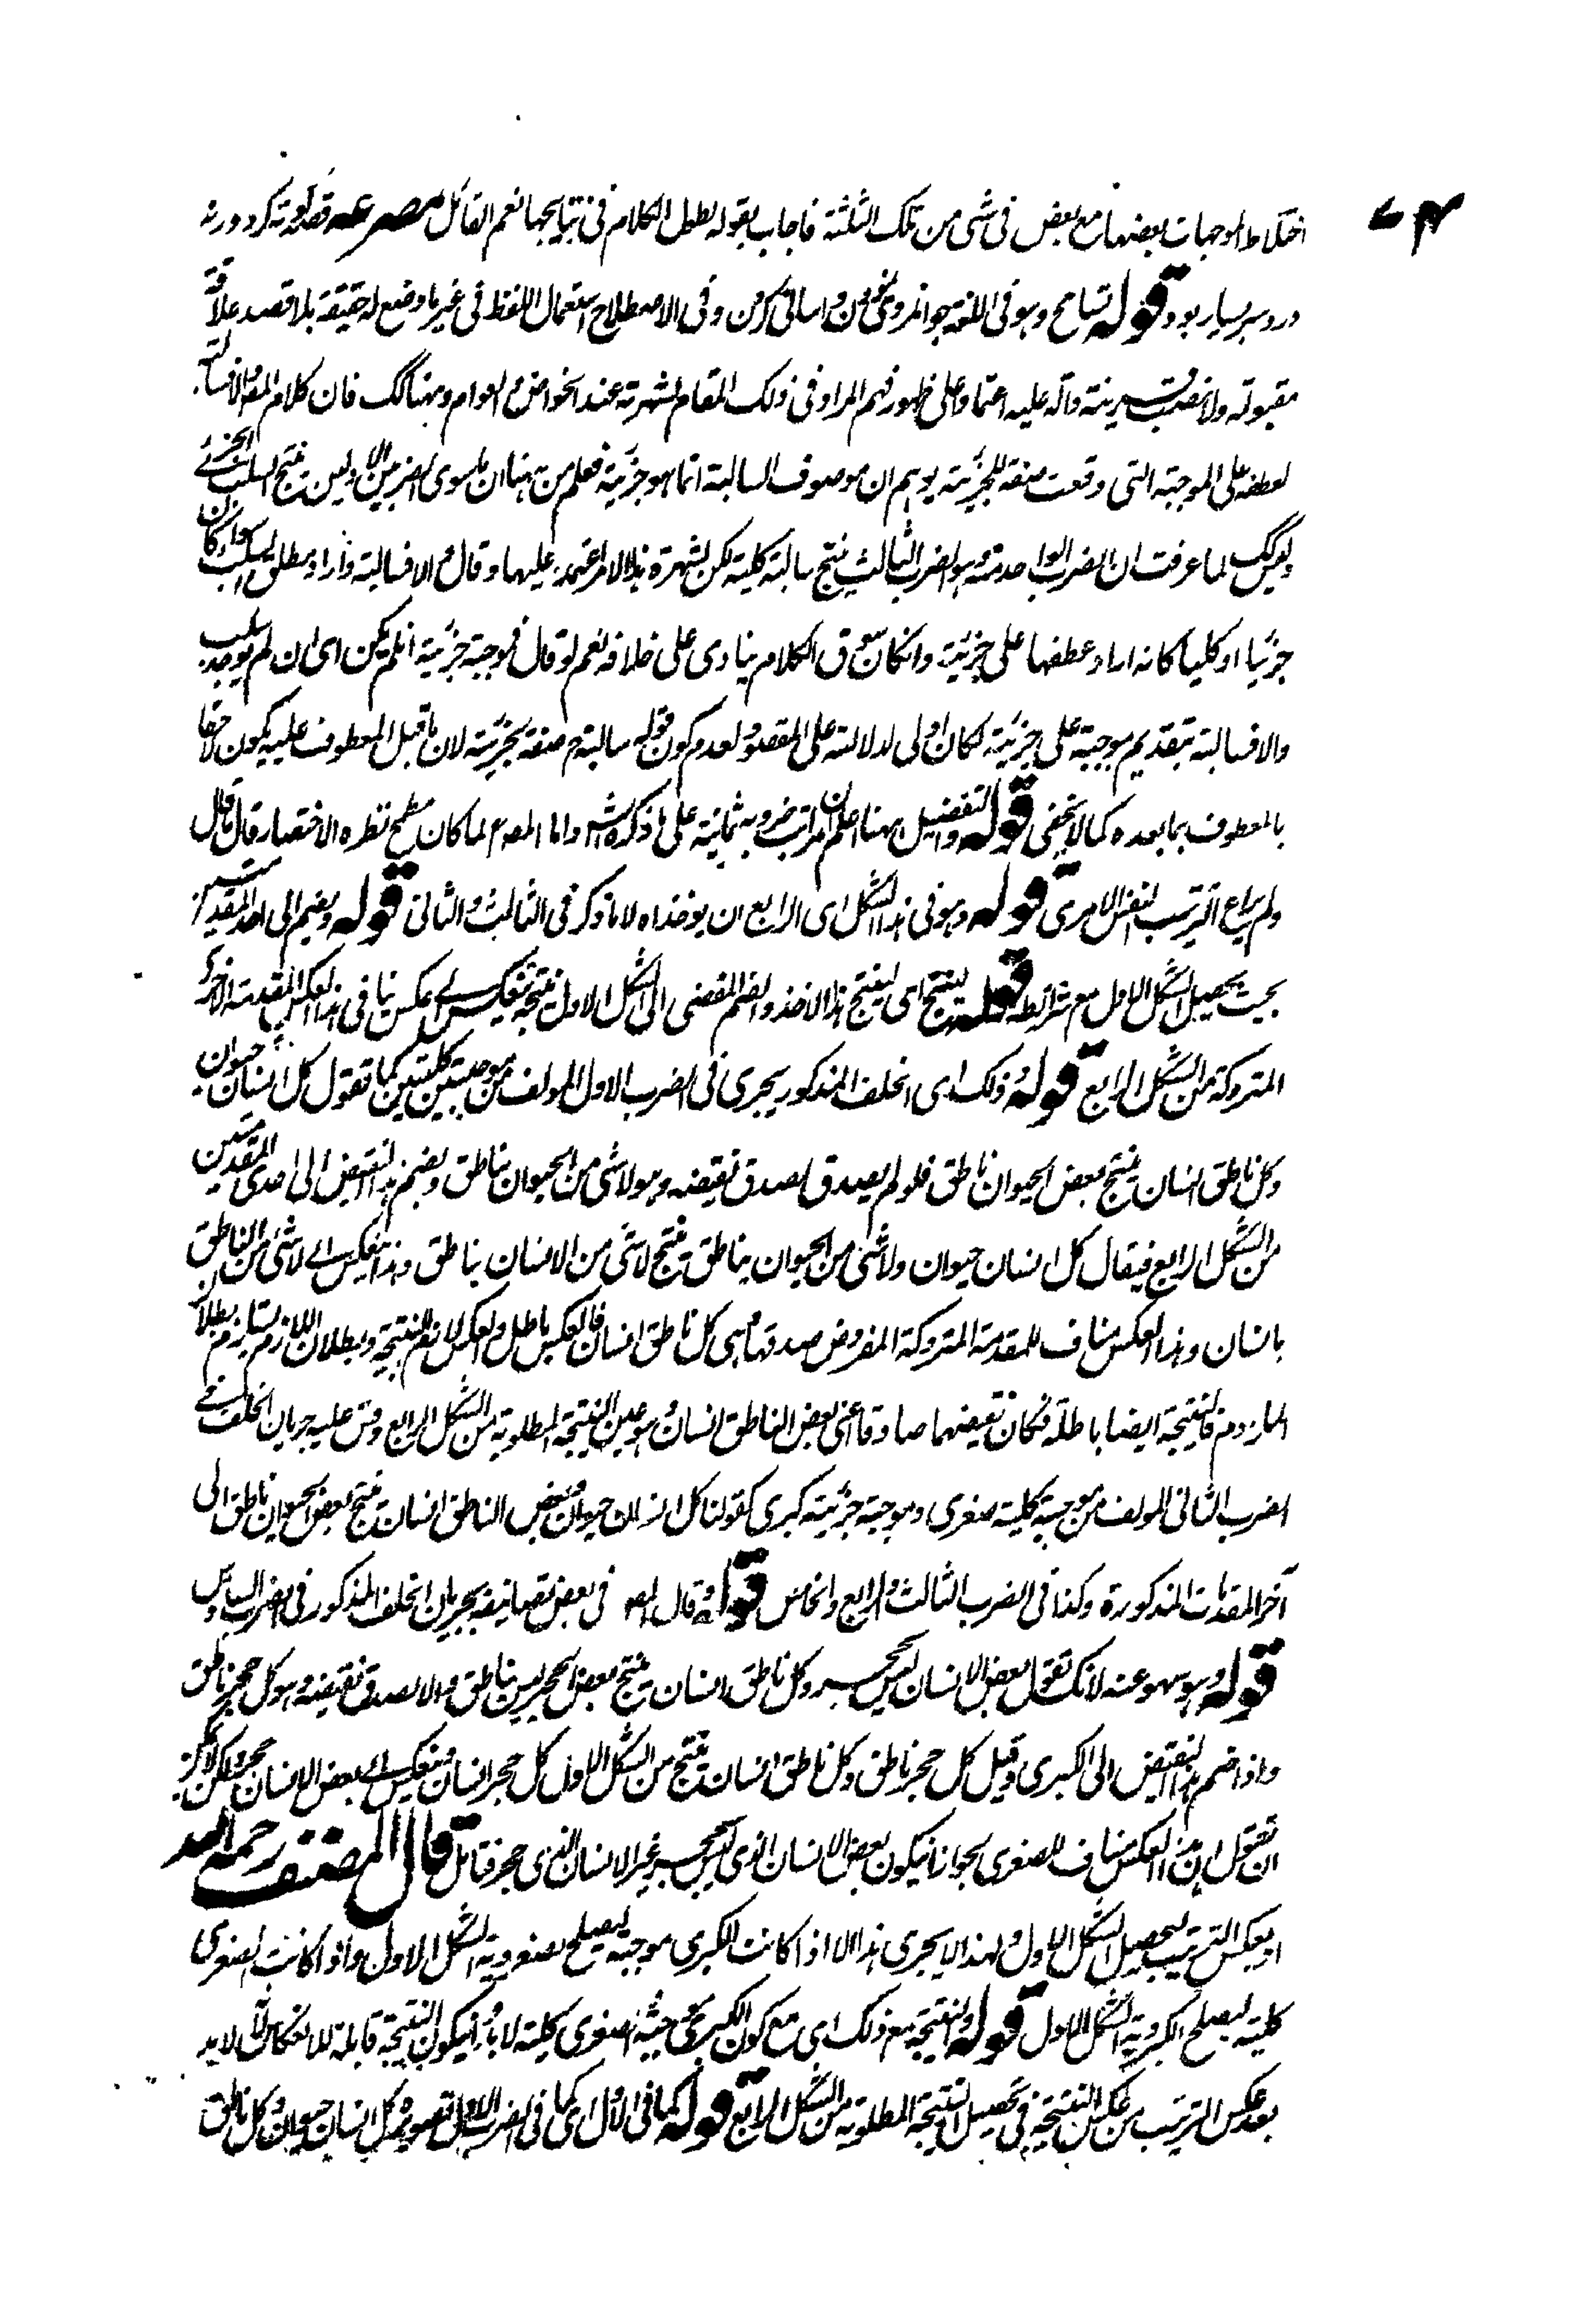 ٧٤
اختلاط الموجهات بعضها مع بعض فى شئ من تلك الثلثة فاجاب بقوله لطول الكلام فى نتايجها نعم القائل مصرعه قصه كوته كرد ورنه
درد سر بسيار بود قوله تسامح وهو فى اللغة جوانمردى نمودن واسانى كردن وفى الاصطلاح استعمال اللفظ فى غير ما وضع له حقيقة بلا قصد علاقة
مقبولة ولا نصب قرينة دالة عليه اعتمادا على ظهور فهم المراد فى ذلك المقام لشهرته عند الخواص والعوام وههنا كك فان كلام المص والا فسالبة
لعطفه على الموجبة التى وقعت صفة للجزئية يوهم ان موصوف السالبة انما هو جزئية فعلم من ههنا ان ما سوى الضربين الاولين ينتج السلب الجزئى
وليس كك لما عرفت ان الضرب الواحد منه وهو الضرب الثالث ينتج سالبة كلية لكن لشهرة هذا الامر اعتمد عليها وقال والا فسالبة واراد مطلق السلب سواء كان
جزئيا او كليا كانه اراد عطفها على جزئية وانكان سوق الكلام ينادى على خلافه نعم لو قال فموجبة جزئية ان لم يكن اى ان لم يوجد سلب
والا فسالبة بتقديم موجبة على جزئية لكان اولى لدلالته على المقصود لعدم كون قوله سالبة صفة لجزئية لان ما قبل المعطوف عليه يكون لاحقا
بالمعطوف بما بعده كما لا يخفى قوله والتفصيل ههنا اعلم ان مراتب ضروبه ثمانية على ما ذكره الش واما المص لما كان مطمح نظره الاختصار قال ما قال
ولم يراع الترتيب النفس الامرى قوله وهو فى هذا الشكل اى الرابع ان يوخذ اه لا ما ذكر فى الثالث والثانى قوله ويضم الى احد المقدمتين
بحيث يحصل الشكل الاول مع شرائطه قوله لينتج اى لينتج هذا الاخذ والضم المفضى الى الشكل الاول نتيجة تنعكس الى عكس ينافى هذا العكس المقدمة الاخرى
المتروكة من الشكل الرابع قوله وذلك اى الخلف المذكور يجرى فى الضرب الاول المولف من موجبتين كليتين كما تقول كل انسان حيوان
وكل ناطق انسان ينتج بعض الحيوان ناطق فلو لم يصدق لصدق نقيضه وهو لا شئ من الحيوان بناطق ويضم هذا النقيض الى احدى المقدمتين
من الشكل الرابع فيقال كل انسان حيوان ولا شئ من الحيوان بناطق ينتج لا شئ من الانسان بناطق وهذا ينعكس الى لا شئ من الناطق
بانسان وهذا العكس مناف للمقدمة المتروكة المفروض صدقها وهى كل ناطق انسان فالعكس باطل والعكس لازم للنتيجة وبطلان اللازم يستلزم بطلان
الملزوم فالنتيجة ايضا باطلة فكان نقيضهما صادقا اعنى بعض الناطق انسان وهو عين النتيجة المطلوبة من الشكل الرابع وقس عليه جريان الخلف فى
الضرب الثانى المولف من موجبة كلية صغرى وموجبة جزئية كبرى كقولنا كل انسان حيوان وبعض الناطق انسان ينتج بعض الحيوان ناطق الى
آخر المقدمات المذكورة وكذا فى الضرب الثالث والرابع والخامس قوله وقال المص فى بعض تصانيفه بجريان الخلف المذكور فى الضرب السادس
قوله وهو سهو عنه لانك تقول بعض الانسان ليس بحجر وكل ناطق انسان ينتج بعض الحجر ليس بناطق والا لصدق نقيضه وهو كل حجر ناطق
واذا ضم هذا النقيض الى الكبرى وقيل كل حجر ناطق وكل ناطق انسان ينتج من الشكل الاول كل حجر انسان وينعكس الى بعض الانسان حجر ولا يمكن
ان تقول ان هذا العكس مناف للصغرى لجواز ان يكون بعض الانسان الذى ليس بحجر غير الانسان الذى حجر فتامل قال المصنف رحمه الله
او بعكس الترتيب ليحصل الشكل الاول ولهذا لا يجرى هذا الا اذا كانت الكبرى موجبة ليصلح لصغروية الشكل الاول واذا كانت الصغرى
كلية ليصلح لكبروية الشكل الاول قوله والنتيجة مع ذلك اى مع كون الكبرى موجبة والصغرى كلية لا بد ان يكون النتيجة قابلة للانعكاس لانه لا بد
بعد عكس الترتيب من عكس النتيجة فى تحصيل النتيجة المطلوبة من الشكل الرابع قوله كما فى الاول اى كما فى الضرب الاول تصويره كل انسان حيوان وكل ناطق